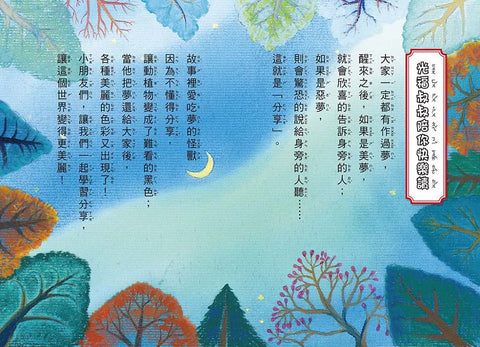 光福叔叔陪你快樂讀
大家一定都有作過夢，
醒來之後，如果是美夢，
就會欣喜的告訴身旁的人；
如果是惡夢，
則會驚恐的說給身旁的人聽……
這就是「分享」。
故事裡愛吃夢的怪獸，
因為不懂得分享，
讓動植物變成了難看的黑色；
當他把夢還給大家後，
各種美麗的色彩又出現了！
小朋友們，讓我們一起學習分享，
讓這個世界變得更美麗！